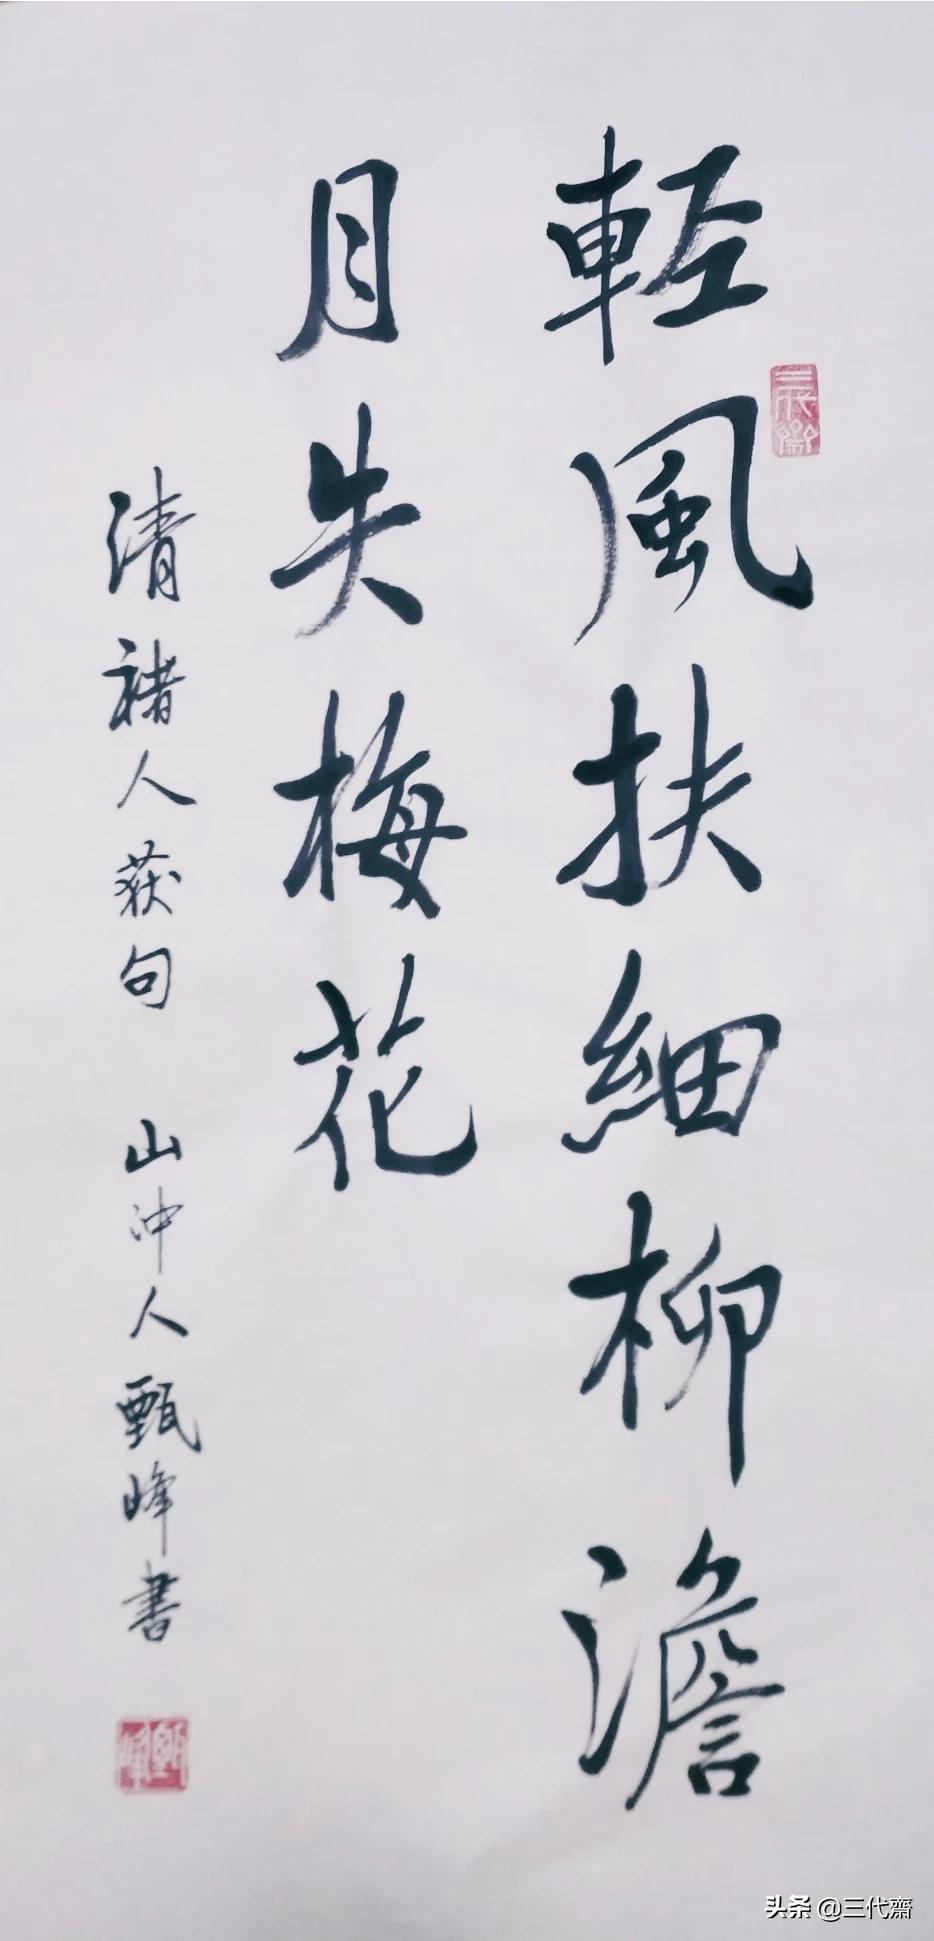 輕風扶細柳澹
月失梅花
清褚人获句 山冲人甄峰書
三代齋
甄峰
头条 @三代齋